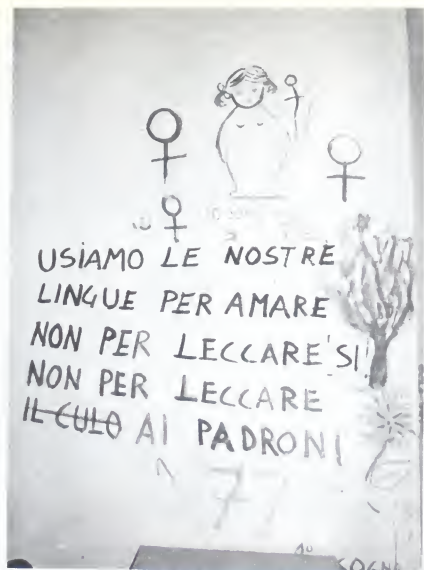 USIAMO LE NOSTRE
LINGUE PER AMARE
NON PER LECCARE SI!
NON PER LECCARE
IL CULO AI PADRONI
77